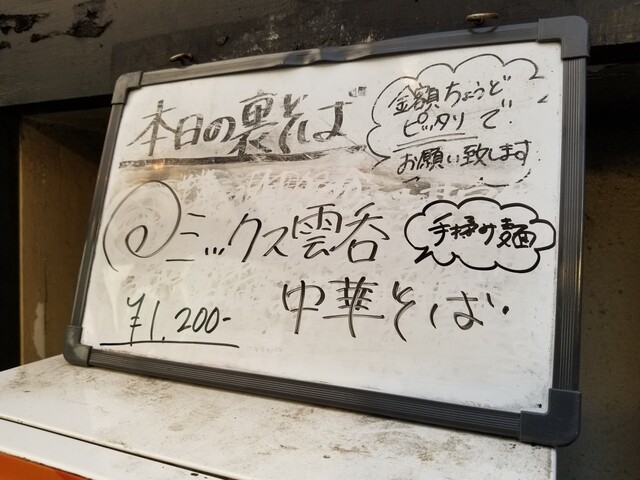 本日の裏そば
金額ちょうど
ピッタリで
お願い致します
ミックス雲呑
手揉み麺
中華そば
¥1,200-